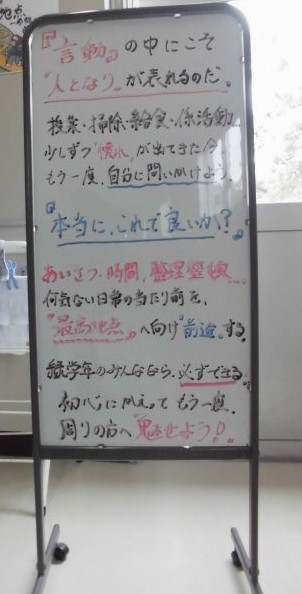 『言動』の中にこそ
"人となり"が表れるのだ。
授業・掃除・給食・係活動
少しずつ"慣れ"が出てきた今
もう一度、自分に問いかけよう。
『本当に、これで良いか？』
あいさつ・時間、整理整頓…
何気ない日常の当たり前を、
"最高地点"へ向け"前進"する。
学年のみんななら、必ずできる。
初心にかえって もう一度、
周りの方へ"魅せよう"！
地点